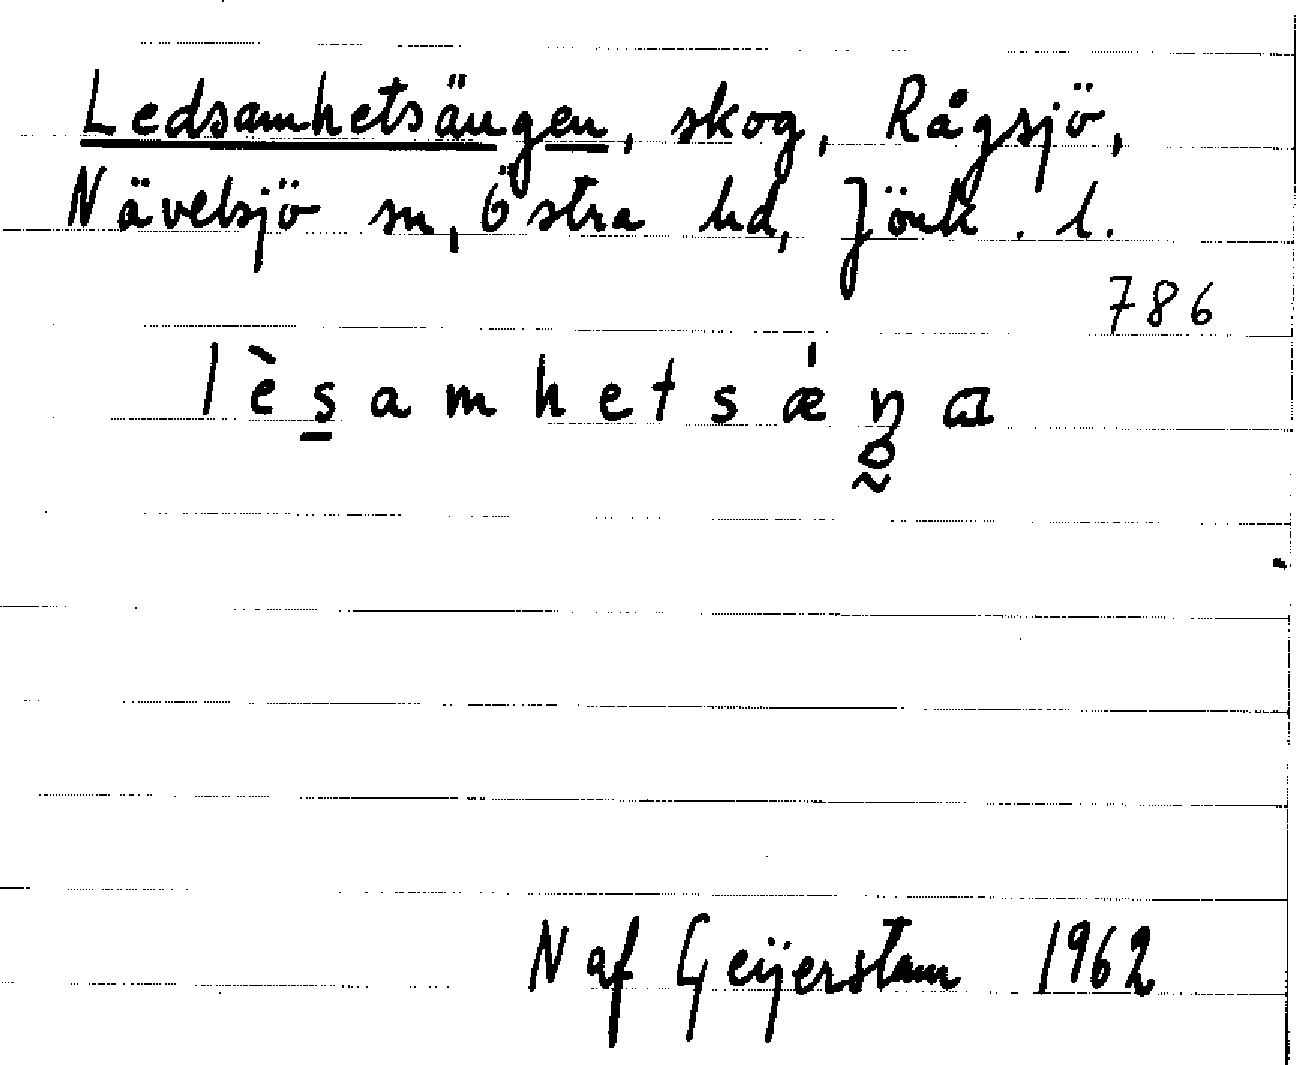 Ledsamhetsängen, skog, Rågsjö,
Nävelsjö sn, Östra hd, Jönk. l.
786
lèsamhetsǽŋa
N af Geijerstam 1962